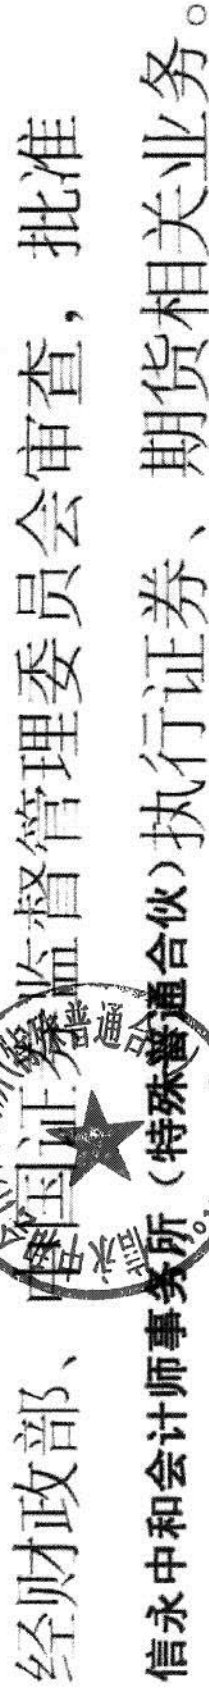 经财政部、中国证券监督管理委员会审查，批准
信永中和会计师事务所（特殊普通合伙）执行证券、期货相关业务。